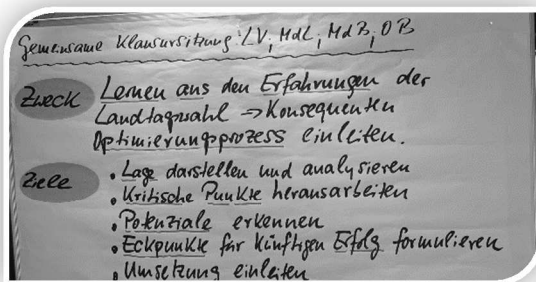 Gemeinsame Klausursitzung: LV, MdL, MdB, OB
Zweck Lernen aus den Erfahrungen der
Landtagwahl → Konsequenten
Optimierungprozess einleiten.
Ziele • Lage darstellen und analysieren
• Kritische Punkte herausarbeiten
• Potenziale erkennen
• Eckpunkte für künftigen Erfolg formulieren
• Umsetzung einleiten